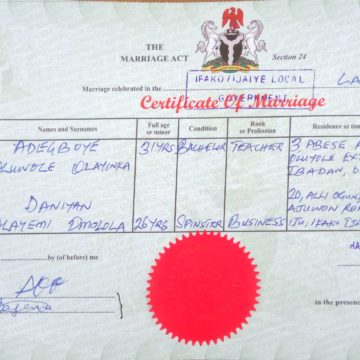 THE
MARRIAGE ACT
Section 24
Marriage celebrated in the
IFAKO/IJAIYE LOCAL
GOVERNMENT
LA
Certificate Of Marriage
Names and Surnames
Full age or minor
Condition
Rank or Profession
Residence at time
ADEGBOYE
31YRS
BACHELOR
TEACHER
3 ABESE
OLAYINKA
OLUYOLE
IBADAN,
DANIYAN
OMOLOLA
26YRS
SPINSTER
BUSINESS
20, ALLI
AJUWON
IJU, IFAKO
by (of before) me
in the presence